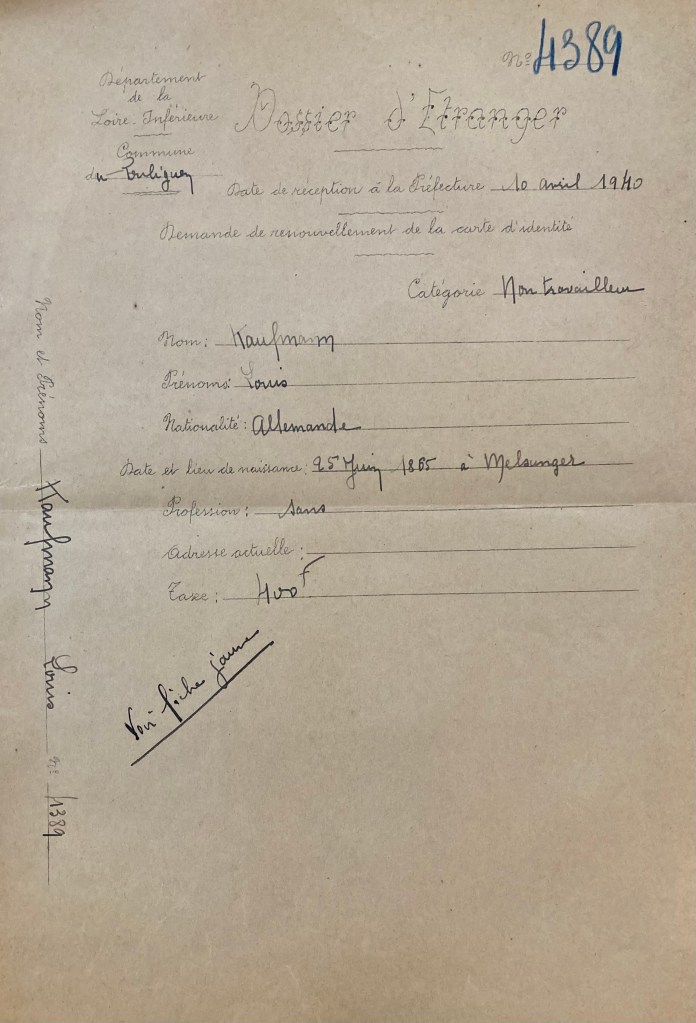 N° 4389
Département
de la
Loire-Inférieure
Commune
du Pouliguen
Dossier d'Etranger
Date de réception à la Préfecture 10 avril 1940
Demande de renouvellement de la carte d'identité
Catégorie Non travailleur
Nom: Kaufmann
Prénoms: Louis
Nationalité: Allemande
Date et lieu de naissance: 25 Juin 1865 à Melsunger
Profession: sans
Adresse actuelle:
Taxe: 400 f
Voir fiche jaune
Nom et Prénoms Kaufmann Louis N° 4389